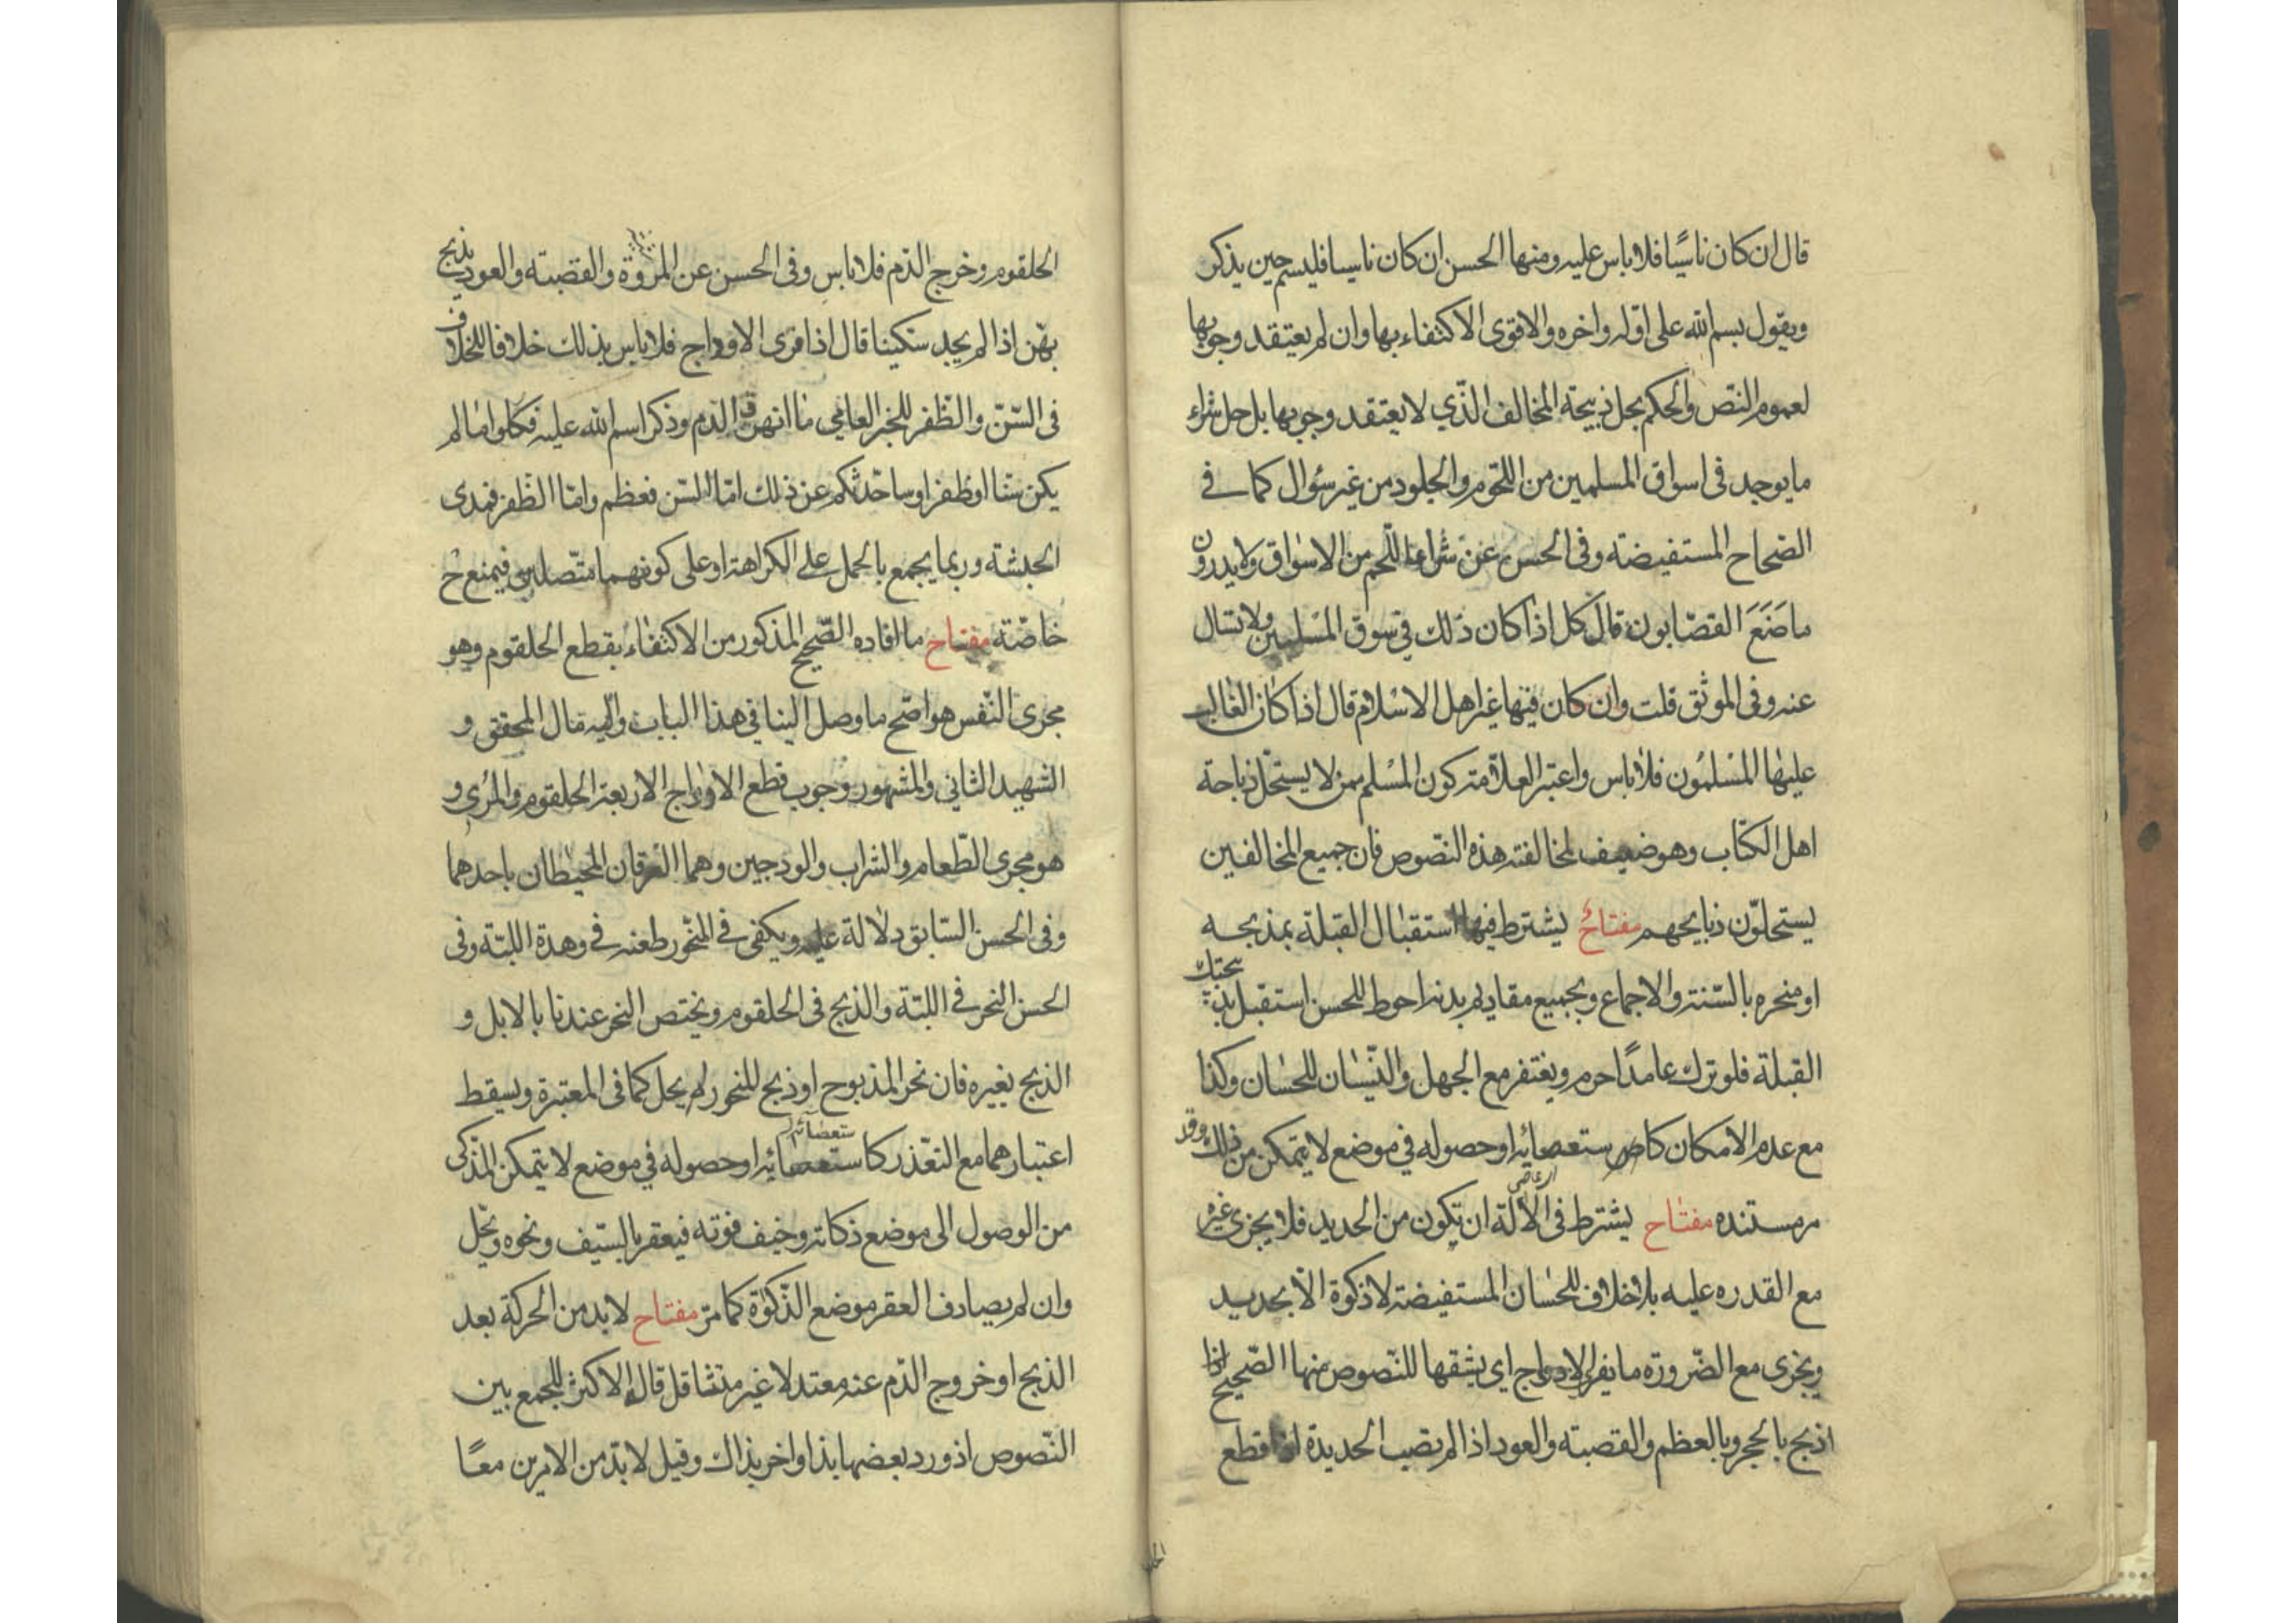 قال ان كان ناسيًا فلا باس عليه ومنها الحسن ان كان ناسيا فليسم حين يذكر
ويقول بسم الله على اوّله واخره والاقوى الاكتفاء بها وان لم يعتقد وجوبها
لعموم النّص والحكم بحل ذبيحة المخالف الّذي لا يعتقد وجوبها بل حل شراء
ما يوجد في اسواق المسلمين من اللّحوم والجلود من غير سؤال كما في
الصّحاح المستفيضة وفى الحسن عن شراء اللّحم من الاسواق ولا يدرون
ما صَنَعَ القصّابون قال كل اذا كان ذلك في سوق المسلمين ولا تسال
عنه وفى الموثق قلت وان كان فيها غير اهل الاسلام قال اذا كان الغالب
عليها المسلمُون فلا باس واعتبر العلاّمة كون المسلم ممن لا يستحلّ ذباحة
اهل الكتاب وهو ضعيف لمخالفته هذه النّصوص فان جميع المخالفين
يستحلّون ذبايحهم مفتاح يشترط فيها استقبال القبلة بمذبحه
او منحره بالسّنة والاجماع وبجميع مقاديم بدنه احوط للحسن استقبل بذبيحتك
القبلة فلو ترك عامدًا حرم ويغتفر مع الجهل والنّسيان للحسان وكذا
مع عدم الامكان كاستعصائه او حصوله في موضع لا يتمكن من ذلك وقد
مر مستنده مفتاح يشترط فى الآلة ان تكون من الحديد فلا يجزى غيره
مع القدره عليه بلا خلاف للحسان المستفيضة لا ذكوة الاّ بحديد
ويجزى مع الضّرورة ما يفرى الاوداج اي يشقها للنّصوص منها الصّحيح اذا
اذبح بالحجر وبالعظم والقصبة والعود اذا لم تصب الحديدة اذا قطع
الحلقوم وخرج الدّم فلا باس وفى الحسن عن المروة والقصبة والعود يذبح
بهّن اذا لم يجد سكينا قال اذا فرى الاوداج فلا باس بذلك خلافا للخلاف
فى السّنّ والظّفر للخبر العامي ما انهر الدّم وذكر اسم الله عليه فكلوا ما لم
يكن سّنا او ظفرا وساحّدثكم عن ذلك امّا السّن فعظم وامّا الظّفر فمدى
الحبشة وربما يجمع بالحمل على الكراهة او على كونهما متّصلين فيمنع ح
خاصّة مفتاح ما افاده الصّحيح المذكور من الاكتفاء بقطع الحلقوم وهو
مجرى النّفس هو اصّح ما وصل الينا في هذا الباب واليه مال المحقق و
الشهيد الثاني والمشهور وجوب قطع الاوداج الاربعة الحلقوم والمرئ و
هو مجرى الطّعام والشراب والودجين وهما العرقان المحيطان باحدهما
وفى الحسن السّابق دلالة عليه ويكفى في المنحور طعنه في وهدة اللبّة وفى
الحسن النحر في اللبّة والذبح فى الحلقوم ويختص النحر عندنا بالابل و
الذبح بغيره فان نحر المذبوح او ذبح المنحور لم يحل كما فى المعتبرة ويسقط
اعتبارهما مع التعّذر كاستعصائه او حصوله في موضع لا يتمكن المذّكى
من الوصول الى موضع ذكاته وخيف فوته فيعقر بالسّيف ونحوه ويحّل
وان لم يصادف العقر موضع الذّكوة كما مرّ مفتاح لا بد من الحركة بعد
الذبح او خروج الدّم عنه معتدلا غير متثاقل قاله الاكثر للجمع بين
النّصوص اذ ورد بعضها بذا واخر بذاك وقيل لا بدّ من الامرين معًا